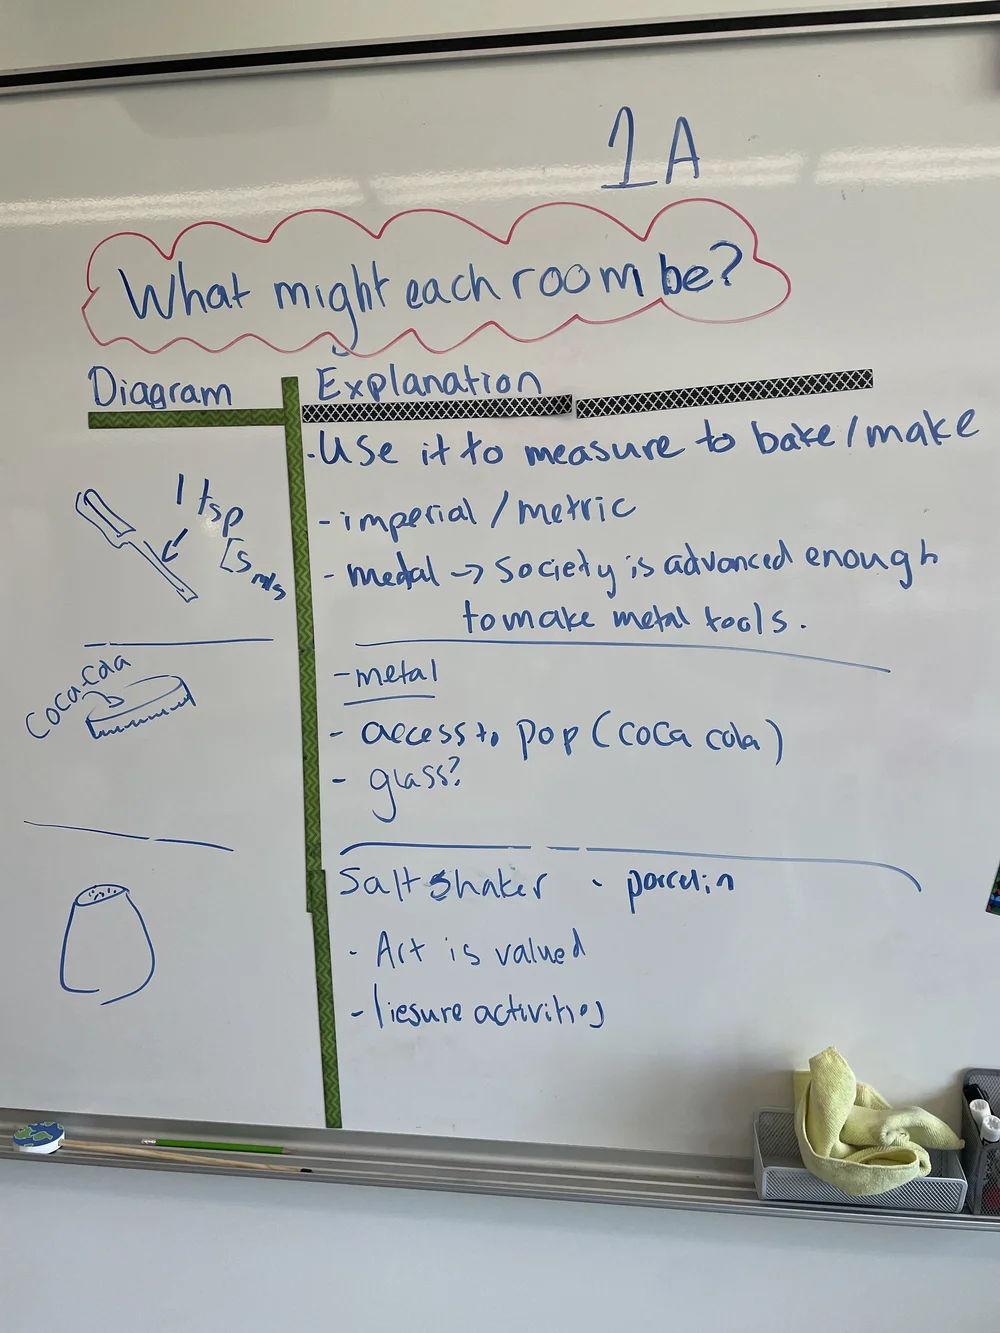 1A
What might each room be?
Diagram
Explanation
1 tsp
[5 mls
·Use it to measure to bake/make
-imperial/metric
- medal -> Society is advanced enough
to make metal tools.
Coca-Cola
-metal
- access to pop (coca cola)
- glass?
Salt Shaker · porcelin
- Art is valued
- liesure activities